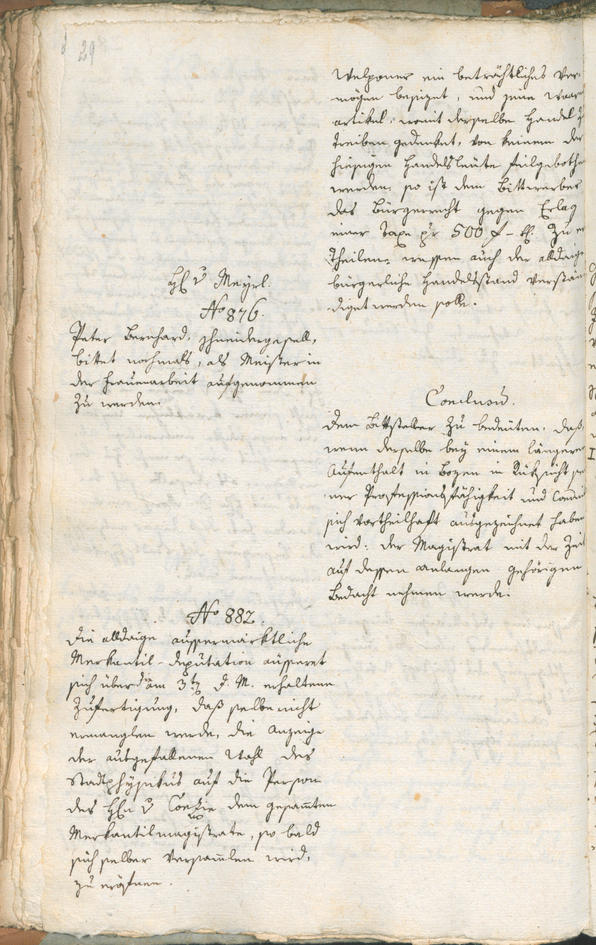 29
Welponer ein beträchtliches Ver-
mögen besizet, und jene Waar
artikel, womit derselbe Handel zu
treiben gedenket, von keinem der
hiesigen Handelsleute feilgebothe
werden, so ist dem Bittwerber
das Bürgerrecht gegen Erlag
einer Taxe pr 500 f - x. zu er
theilen, wessen auch der alldaig
bürgerliche Handelsstand verstän
diget werden solle.
H. v Meyrl.
No 876.
Peter Bernhard, Schneidergesell,
bittet nochmals, als Meister in
der Frauenarbeit aufgenommen
zu werden.
Conclusum.
Dem Bittsteller zu bedeuten, daß
wenn derselbe bey einem längere
Aufenthalt in Bozen in Rüksicht se
ner Professionsfähigkeit und
sich vortheilhaft ausgezeichnet habe
wird, der Magistrat mit der Zeit
auf dessen Anlangen gehörigen
Bedacht nehmen werde.
No 882.
Die alldaige aussermarktliche
Merkantil-Deputation äusseret
sich über dám 3t d. M. erhaltene
Zufertigung, daß selbe nicht
ermanglen werde, die Anzeige
der ausgefallenen Wahl des
Stadtphysikus auf die Person
des H v dem gesamten
Merkantilmagistrate, so bald
sich selber versamlen wird,
zu eröfnen.